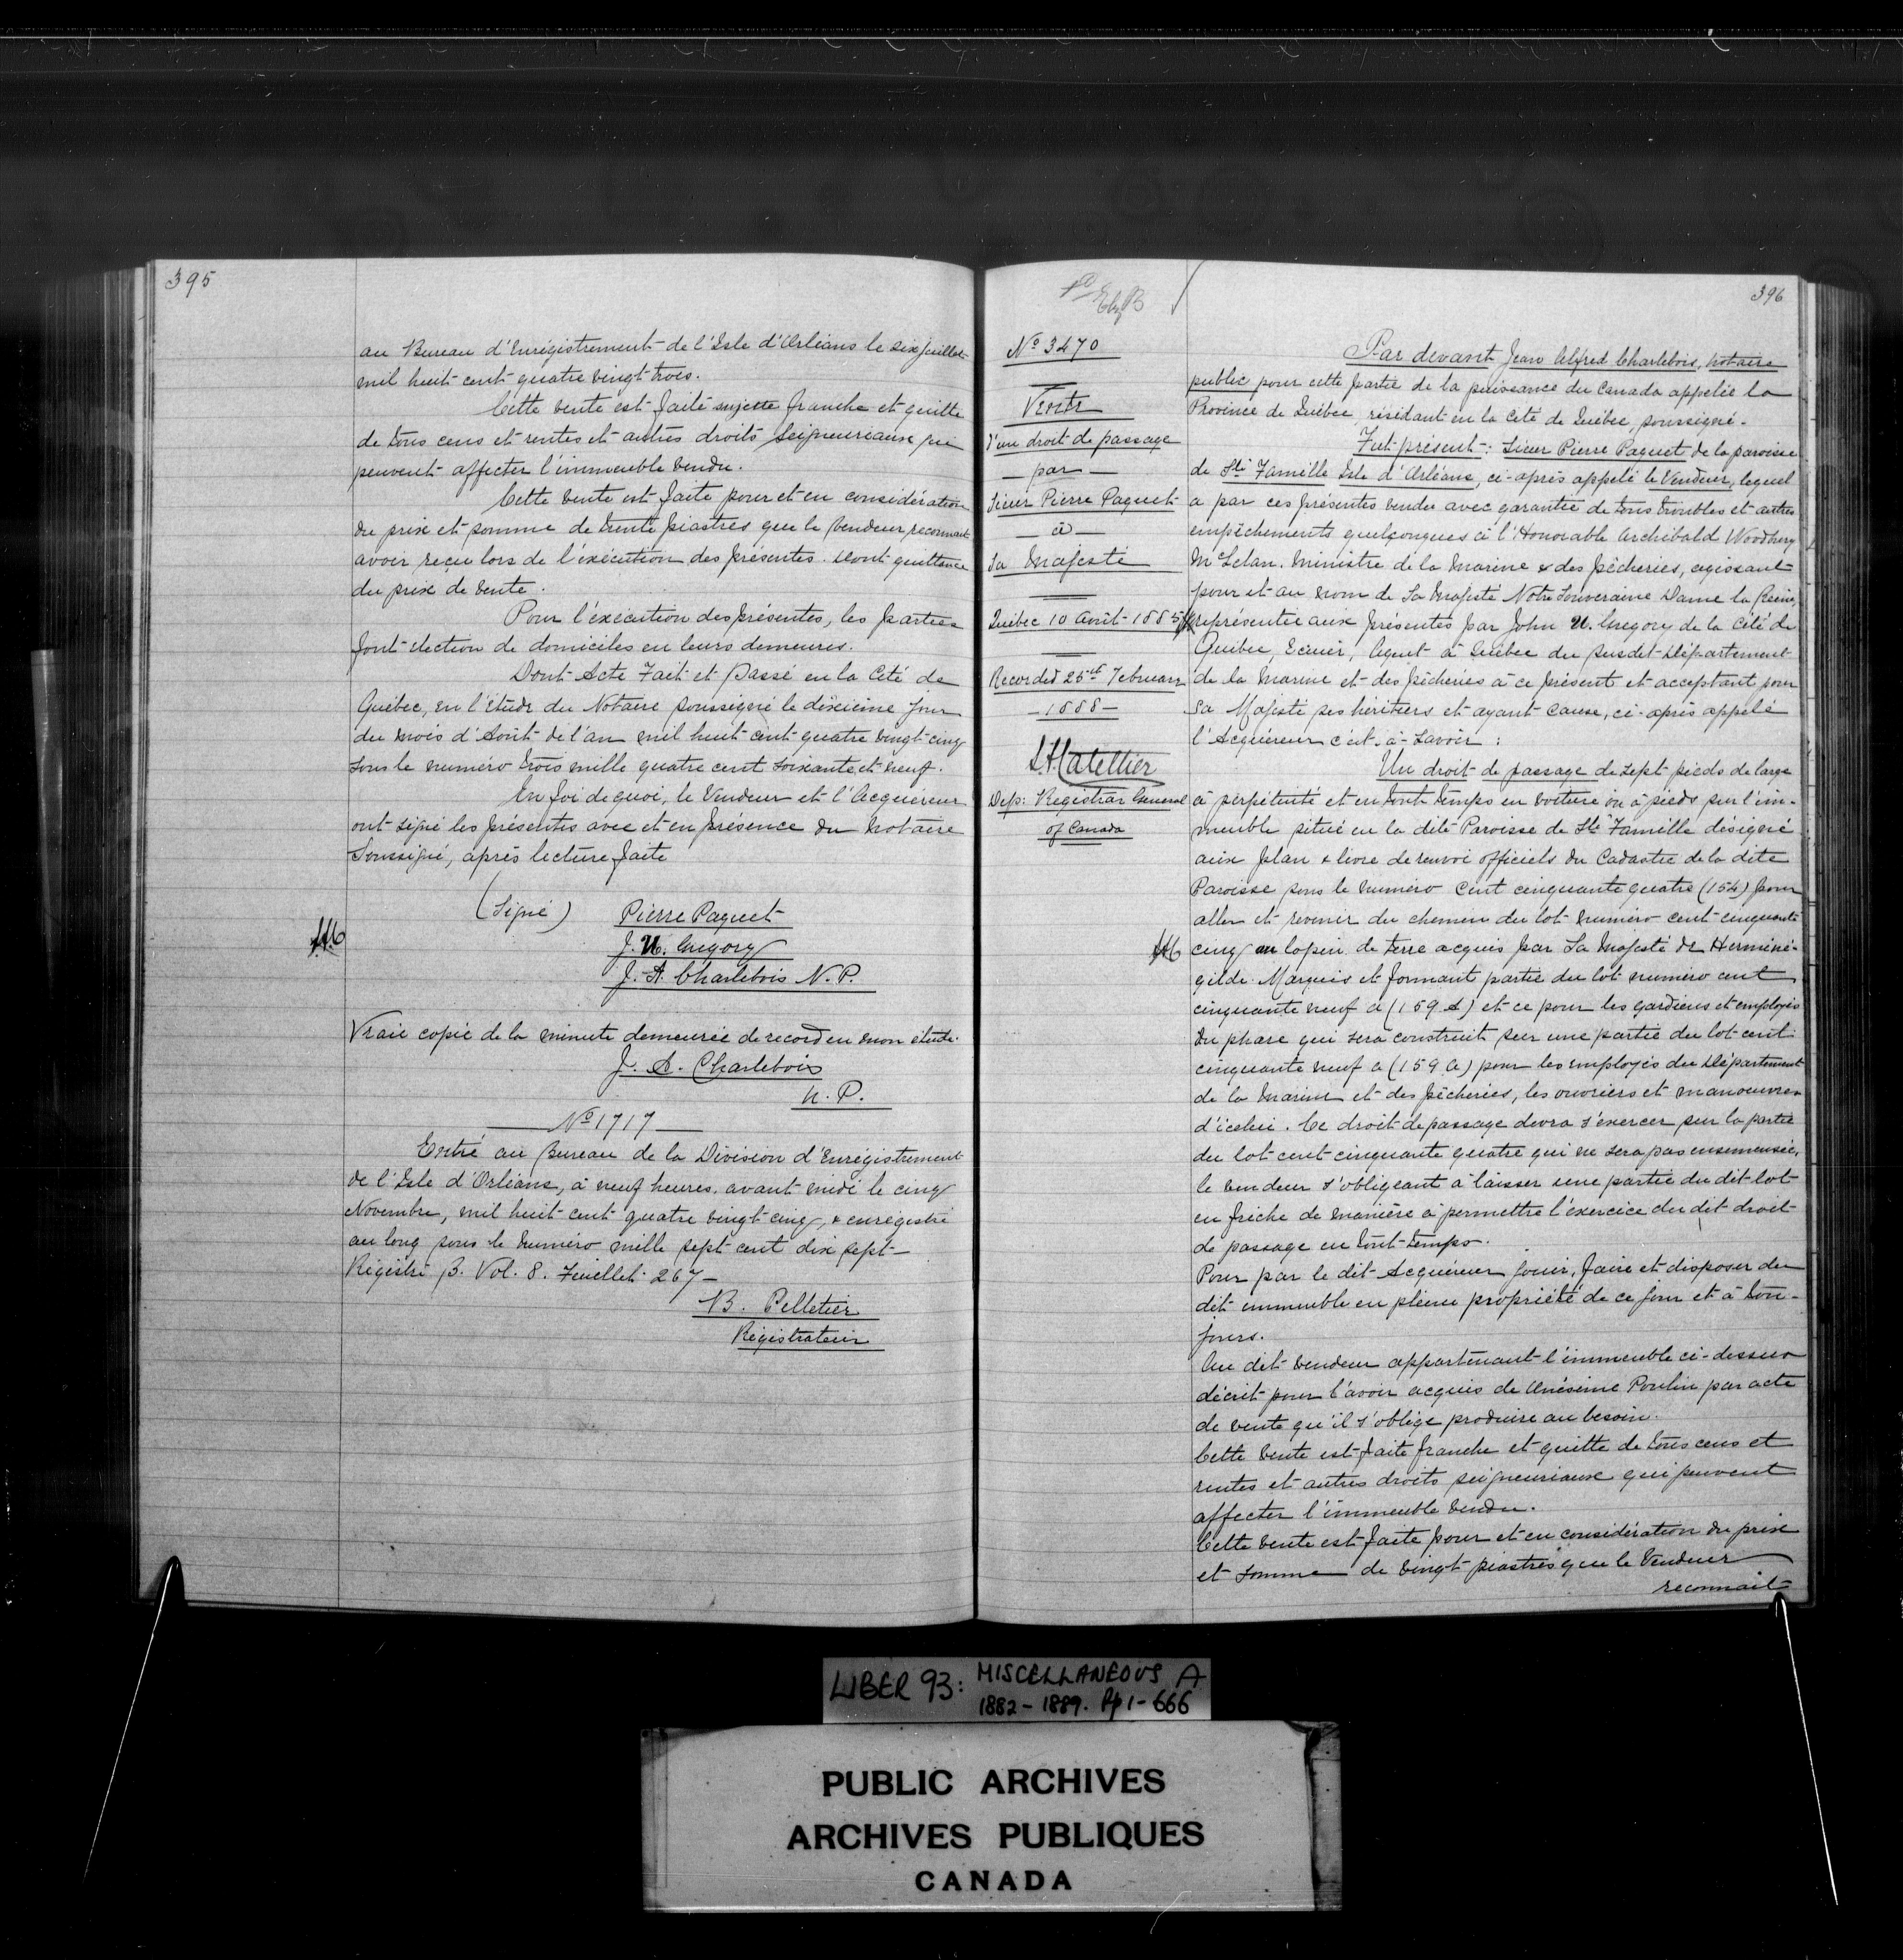 395
au Bureau d'Enrégistrement de l'Isle d'Orléans le six juillet
mil huit cent quatre vingt trois.
Cette vente est faite sujette franche et quitte
de tous cens et rentes et autres droits Seigneuriaux qui
peuvent affecter l'immeuble vendu.
Cette vente est faite pour et en considération
du prix et somme de trente piastres que le vendeur reconnait
avoir reçu lors de l'éxécution des présentes. Dont quittance
du prix de vente.
Pour l'éxécution des présentes, les parties
font élection de domiciles en leurs demeures.
Dont Acte Fait et Passé en la Cité de
Québec, en l'étude du Notaire soussigné le dixième jour
du mois d'Août de l'an mil huit cent quatre vingt cinq
sous le numéro trois mille quatre cent soixante et neuf.
En foi de quoi, le Vendeur et l'Acquéreur
ont signé les présentes avec et en présence du Notaire
Soussigné, après lecture faite
(Signé) Pierre Paquet
J. U. Gregory
J. A. Charlebois N. P.
Vraie copie de la minute demeurée de record en mon étude.
J. A. Charlebois
N. P.
No 1717
Entré au Bureau de la Division d'Enrégistrement
de l'Isle d'Orléans, à neuf heures avant midi le cinq
Novembre, mil huit cent quatre vingt cinq, & enrégistré
au long sous le numéro mille sept cent dix sept
Régistre B. Vol. 8. Feuillet 267
B. Pelletier
Régistrateur
396
No 3470
Vente
d'un droit de passage
par
Sieur Pierre Paquet
à
Sa Majesté
Québec 10 Août 1885
Recorded 25th February
1888
L. A. Catellier
Dep: Registrar General
of Canada
Par devant Jean Alfred Charlebois, notaire
public pour cette partie de la puissance du Canada appelée la
Province de Québec, résidant en la Cité de Québec, soussigné.
Fut présent: Sieur Pierre Paquet de la paroisse
de Ste Famille Isle d'Orléans, ci-après appelé le Vendeur, lequel
a par ces présentes vendu avec garantie de tous troubles et autres
empêchements quelçonques à l'Honorable Archibald Woodbury
McLelan, Ministre de la Marine & des Pêcheries, agissant
pour et au nom de Sa Majesté Notre Souveraine Dame la Reine,
représentée aux présentes par John U. Gregory de la Cité de
Québec, Ecuier, Agent à Québec du susdit Département
de la Marine et des Pêcheries à ce présent et acceptant pour
Sa Majesté ses héritiers et ayant cause, ci-après appelé
l'Acquéreur c'est-à-savoir:
Un droit de passage de sept pieds de large
à perpétuité et en tout temps en voiture ou à pieds sur l'im-
meuble situé en la dite Paroisse de Ste Famille désigné
aux plan & livre de renvoi officiels du Cadastre de la dite
Paroisse sous le numéro Cent cinquante quatre (154) pour
aller et revenir du chemin du lot numéro cent cinquante
cinq au lopin de terre acquis par Sa Majesté de Herméné-
gilde Marquis et formant partie du lot numéro cent
cinquante neuf a (159 A) et ce pour les gardiens et employés
du phare qui sera construit sur une partie du lot cent
cinquante neuf a (159 a) pour les employés du Département
de la Marine et des Pêcheries, les ouvriers et manoeuvres
d'icelui. Ce droit de passage devra s'éxercer sur la partie
du lot cent cinquante quatre qui ne sera pas ensemensée,
le vendeur s'obligeant à laisser une partie du dit lot
en friche de manière à permettre l'éxercice du dit droit
de passage en tout temps.
Pour par le dit Acquéreur jouir, faire et disposer du
dit immeuble en pleine propriété de ce jour et à tou-
jours.
Au dit vendeur appartenant l'immeuble ci-dessus
décrit pour l'avoir acquis de Onésime Poulin par acte
de vente qu'il s'oblige produire au besoin.
Cette vente est faite franche et quitte de tous cens et
rentes et autres droits seigneuriaux qui peuvent
affecter l'immeuble vendu.
Cette vente est faite pour et en considération du prix
et somme de vingt piastres que le Vendeur
reconnait
LIBER 93: MISCELLANEOUS A
1882-1889. Pp 1-666
PUBLIC ARCHIVES
ARCHIVES PUBLIQUES
CANADA